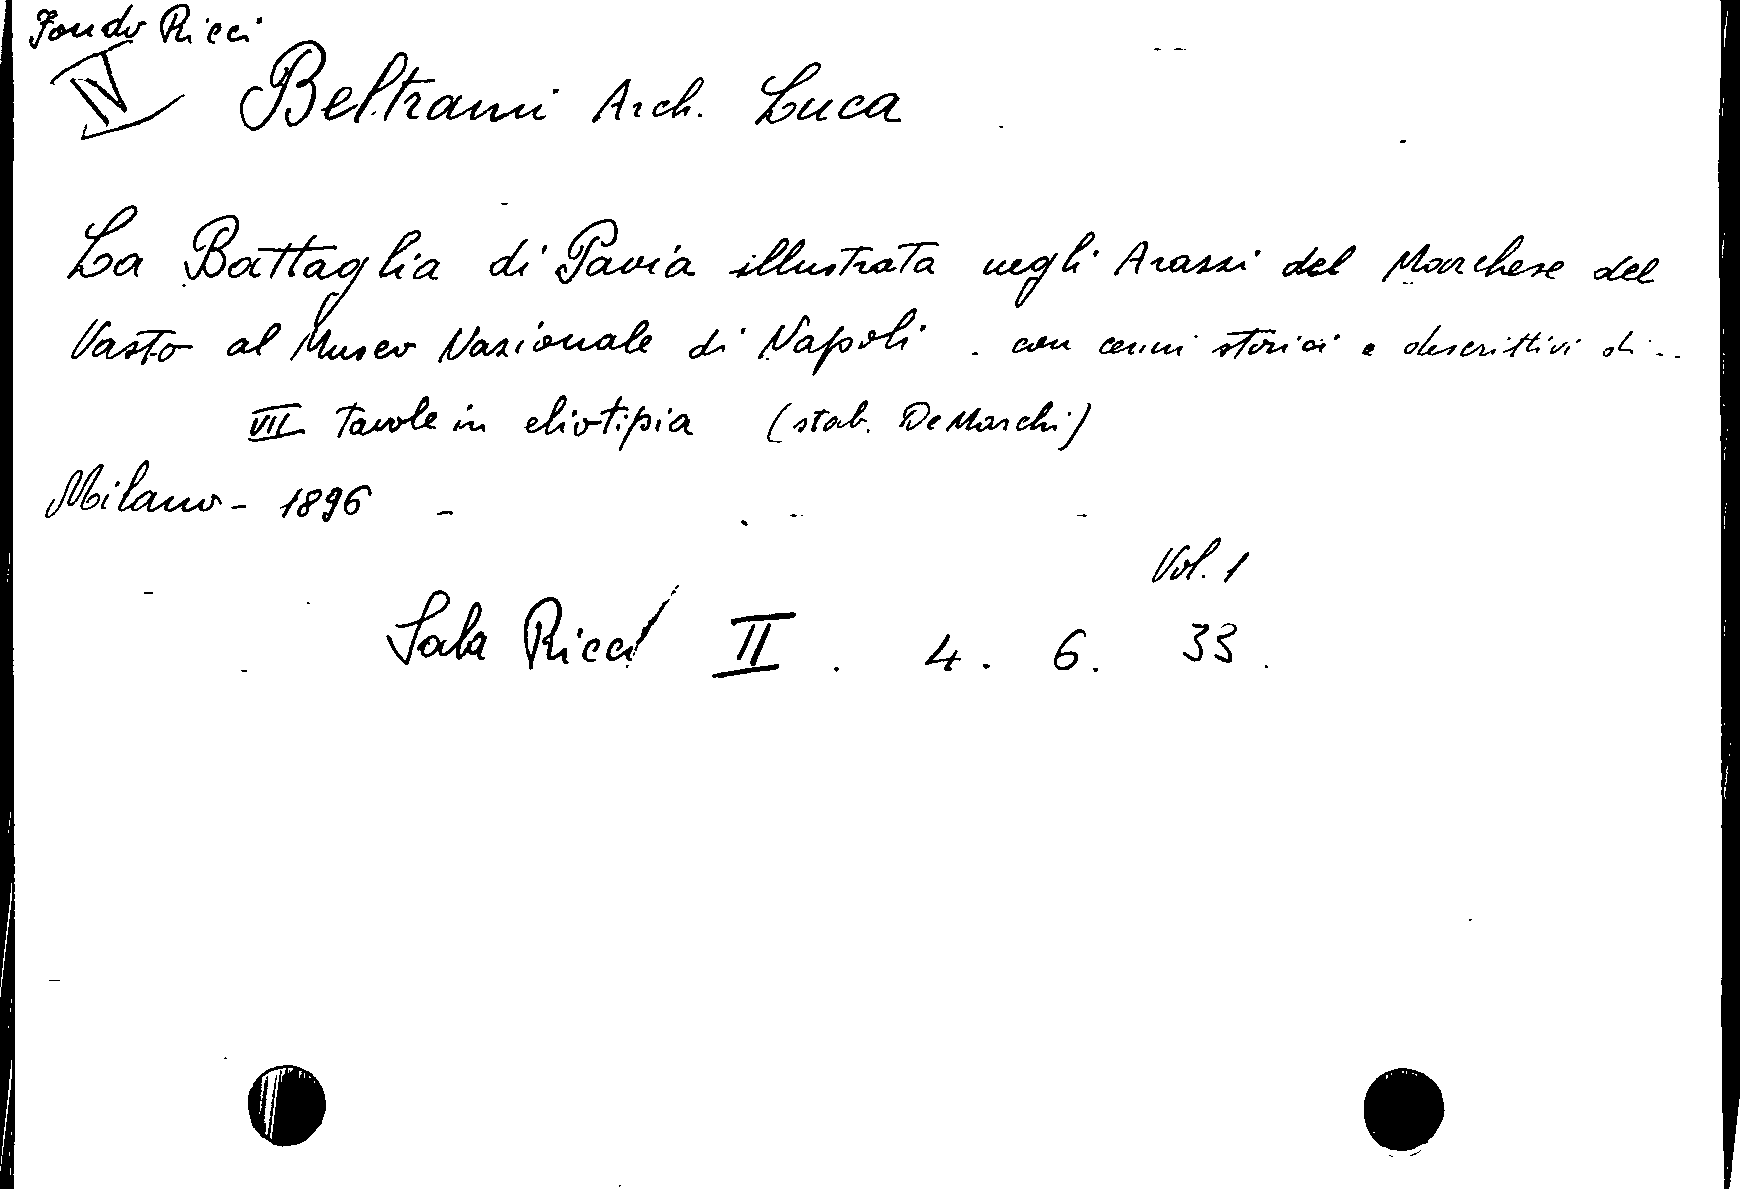 Fondo Ricci
IV Beltrami Arch. Luca
La Battaglia di Pavia illustrata negli Arazzi del Marchese del
Vasto al Museo Nazionale di Napoli. con cenni storici e descrittivi di...
VII Tavole in eliotipia (stab. De Marchi)
Milano - 1896 -
Vol. 1
Sala Ricci II . 4 . 6 . 33 .